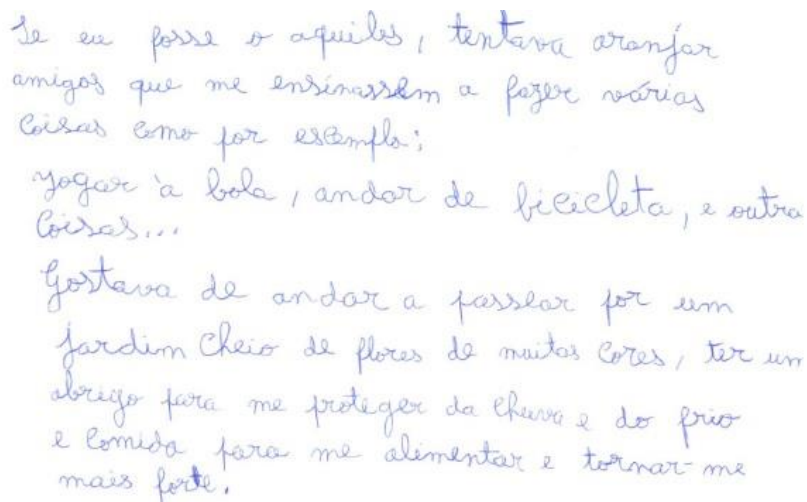 Se eu fosse o aquiles, tentava aranjar
amigos que me ensinassem a fazer várias
coisas como por escemplo:
yogar à bola, andar de bicicleta, e outra
coisas...
Gostava de andar a passear por um
jardim cheio de flores de muitas cores, ter um
abrigo para me proteger da chuva e do frio
e comida para me alimentar e tornar-me
mais forte.